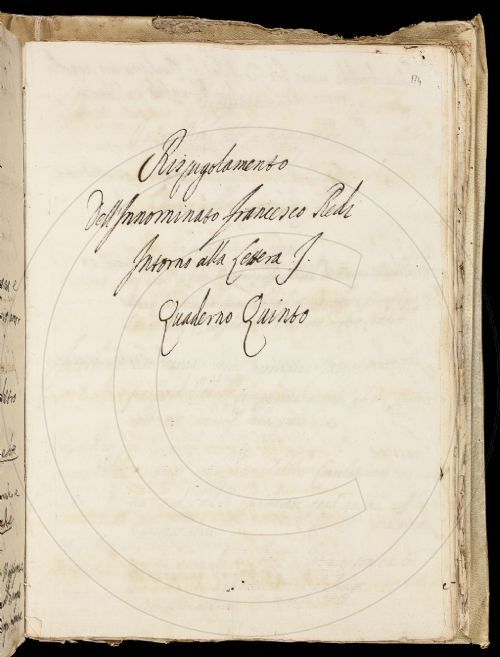 174
Rispigolamento
Dell'Innominato Francesco Redi
Intorno alla Lettera J.
Quaderno Quinto